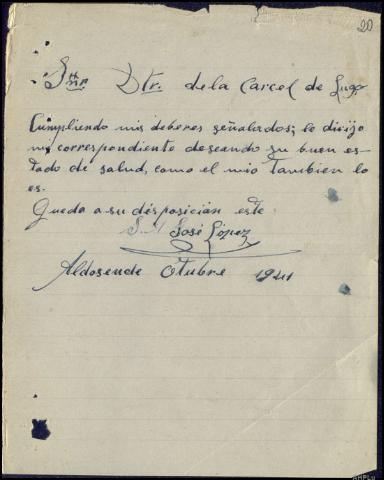 20
Snr. Dtr. de la Carcel de Lugo
Cumpliendo mis deberes señalados; le dirijo
mi correspondiente deseando su buen es-
tado de salud, como el mio tambien lo
es.
Queda a su desposición este
S.S José López
Aldosende Otubre 1941
AHPLu